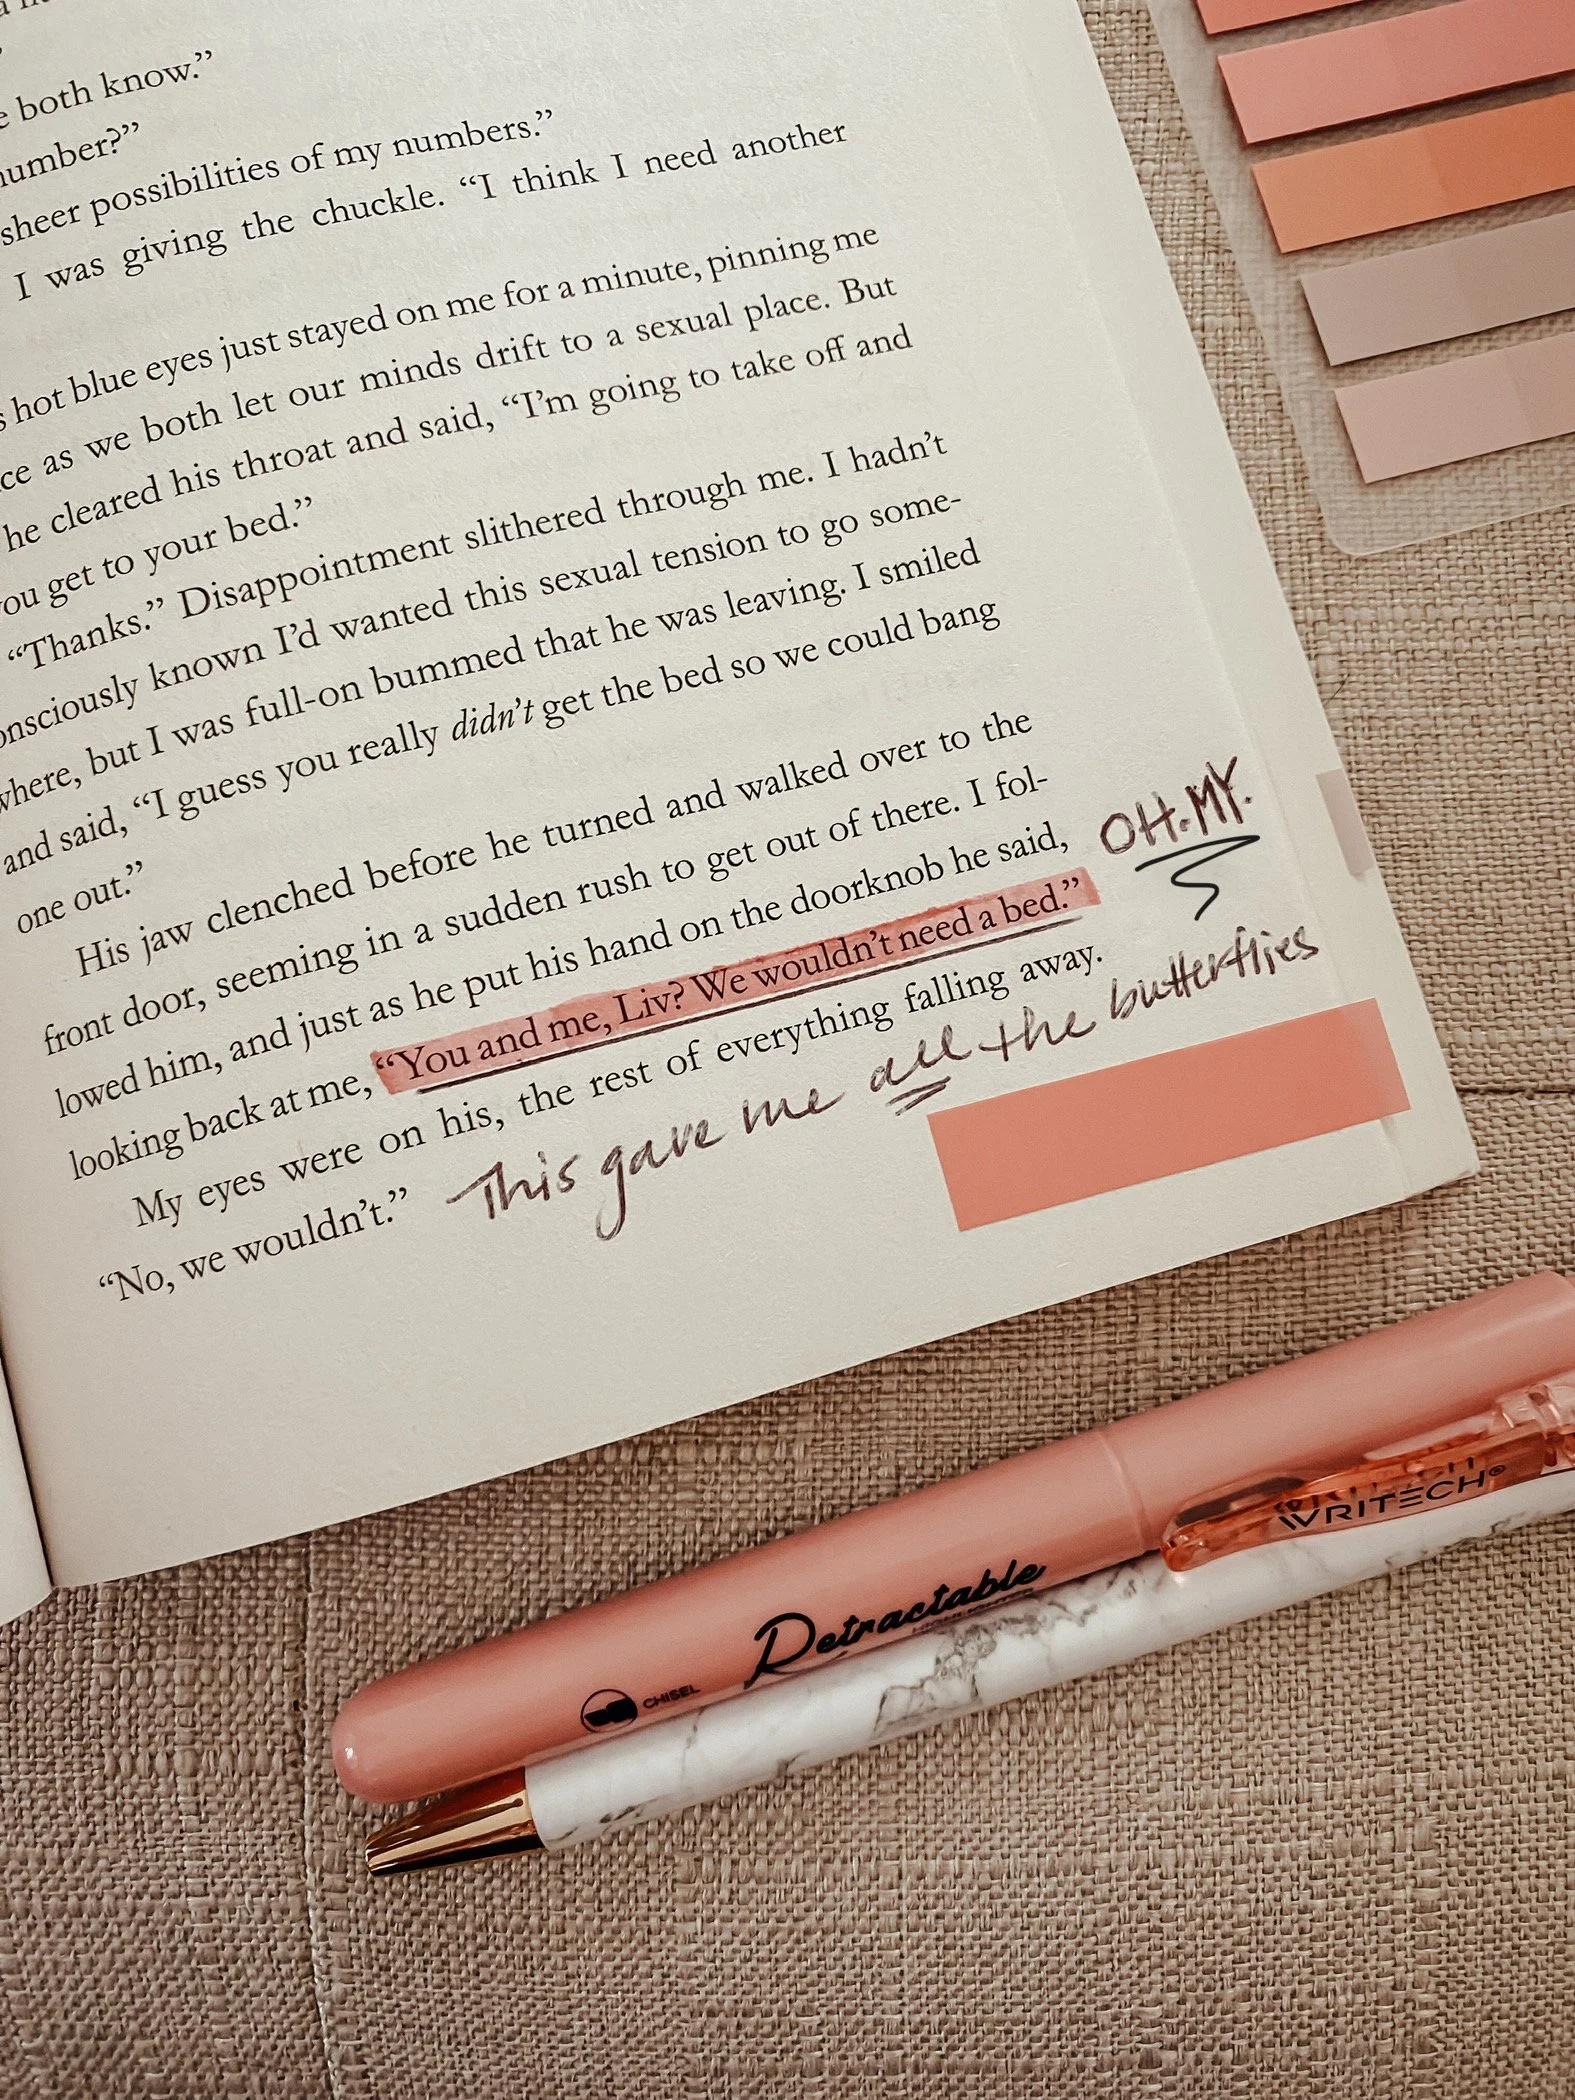 both know.”
number?”
sheer possibilities of my numbers.”
I was giving the chuckle. “I think I need another
hot blue eyes just stayed on me for a minute, pinning me
as we both let our minds drift to a sexual place. But
he cleared his throat and said, “I’m going to take off and
you get to your bed.”
“Thanks.” Disappointment slithered through me. I hadn’t
onsciously known I’d wanted this sexual tension to go some-
where, but I was full-on bummed that he was leaving. I smiled
and said, “I guess you really didn’t get the bed so we could bang
one out.”
His jaw clenched before he turned and walked over to the
front door, seeming in a sudden rush to get out of there. I fol-
lowed him, and just as he put his hand on the doorknob he said,
looking back at me, “You and me, Liv? We wouldn’t need a bed.”
OH.MY.
My eyes were on his, the rest of everything falling away.
“No, we wouldn’t.”
This gave me all the butterflies
WRITECH®
Retractable
CHISEL